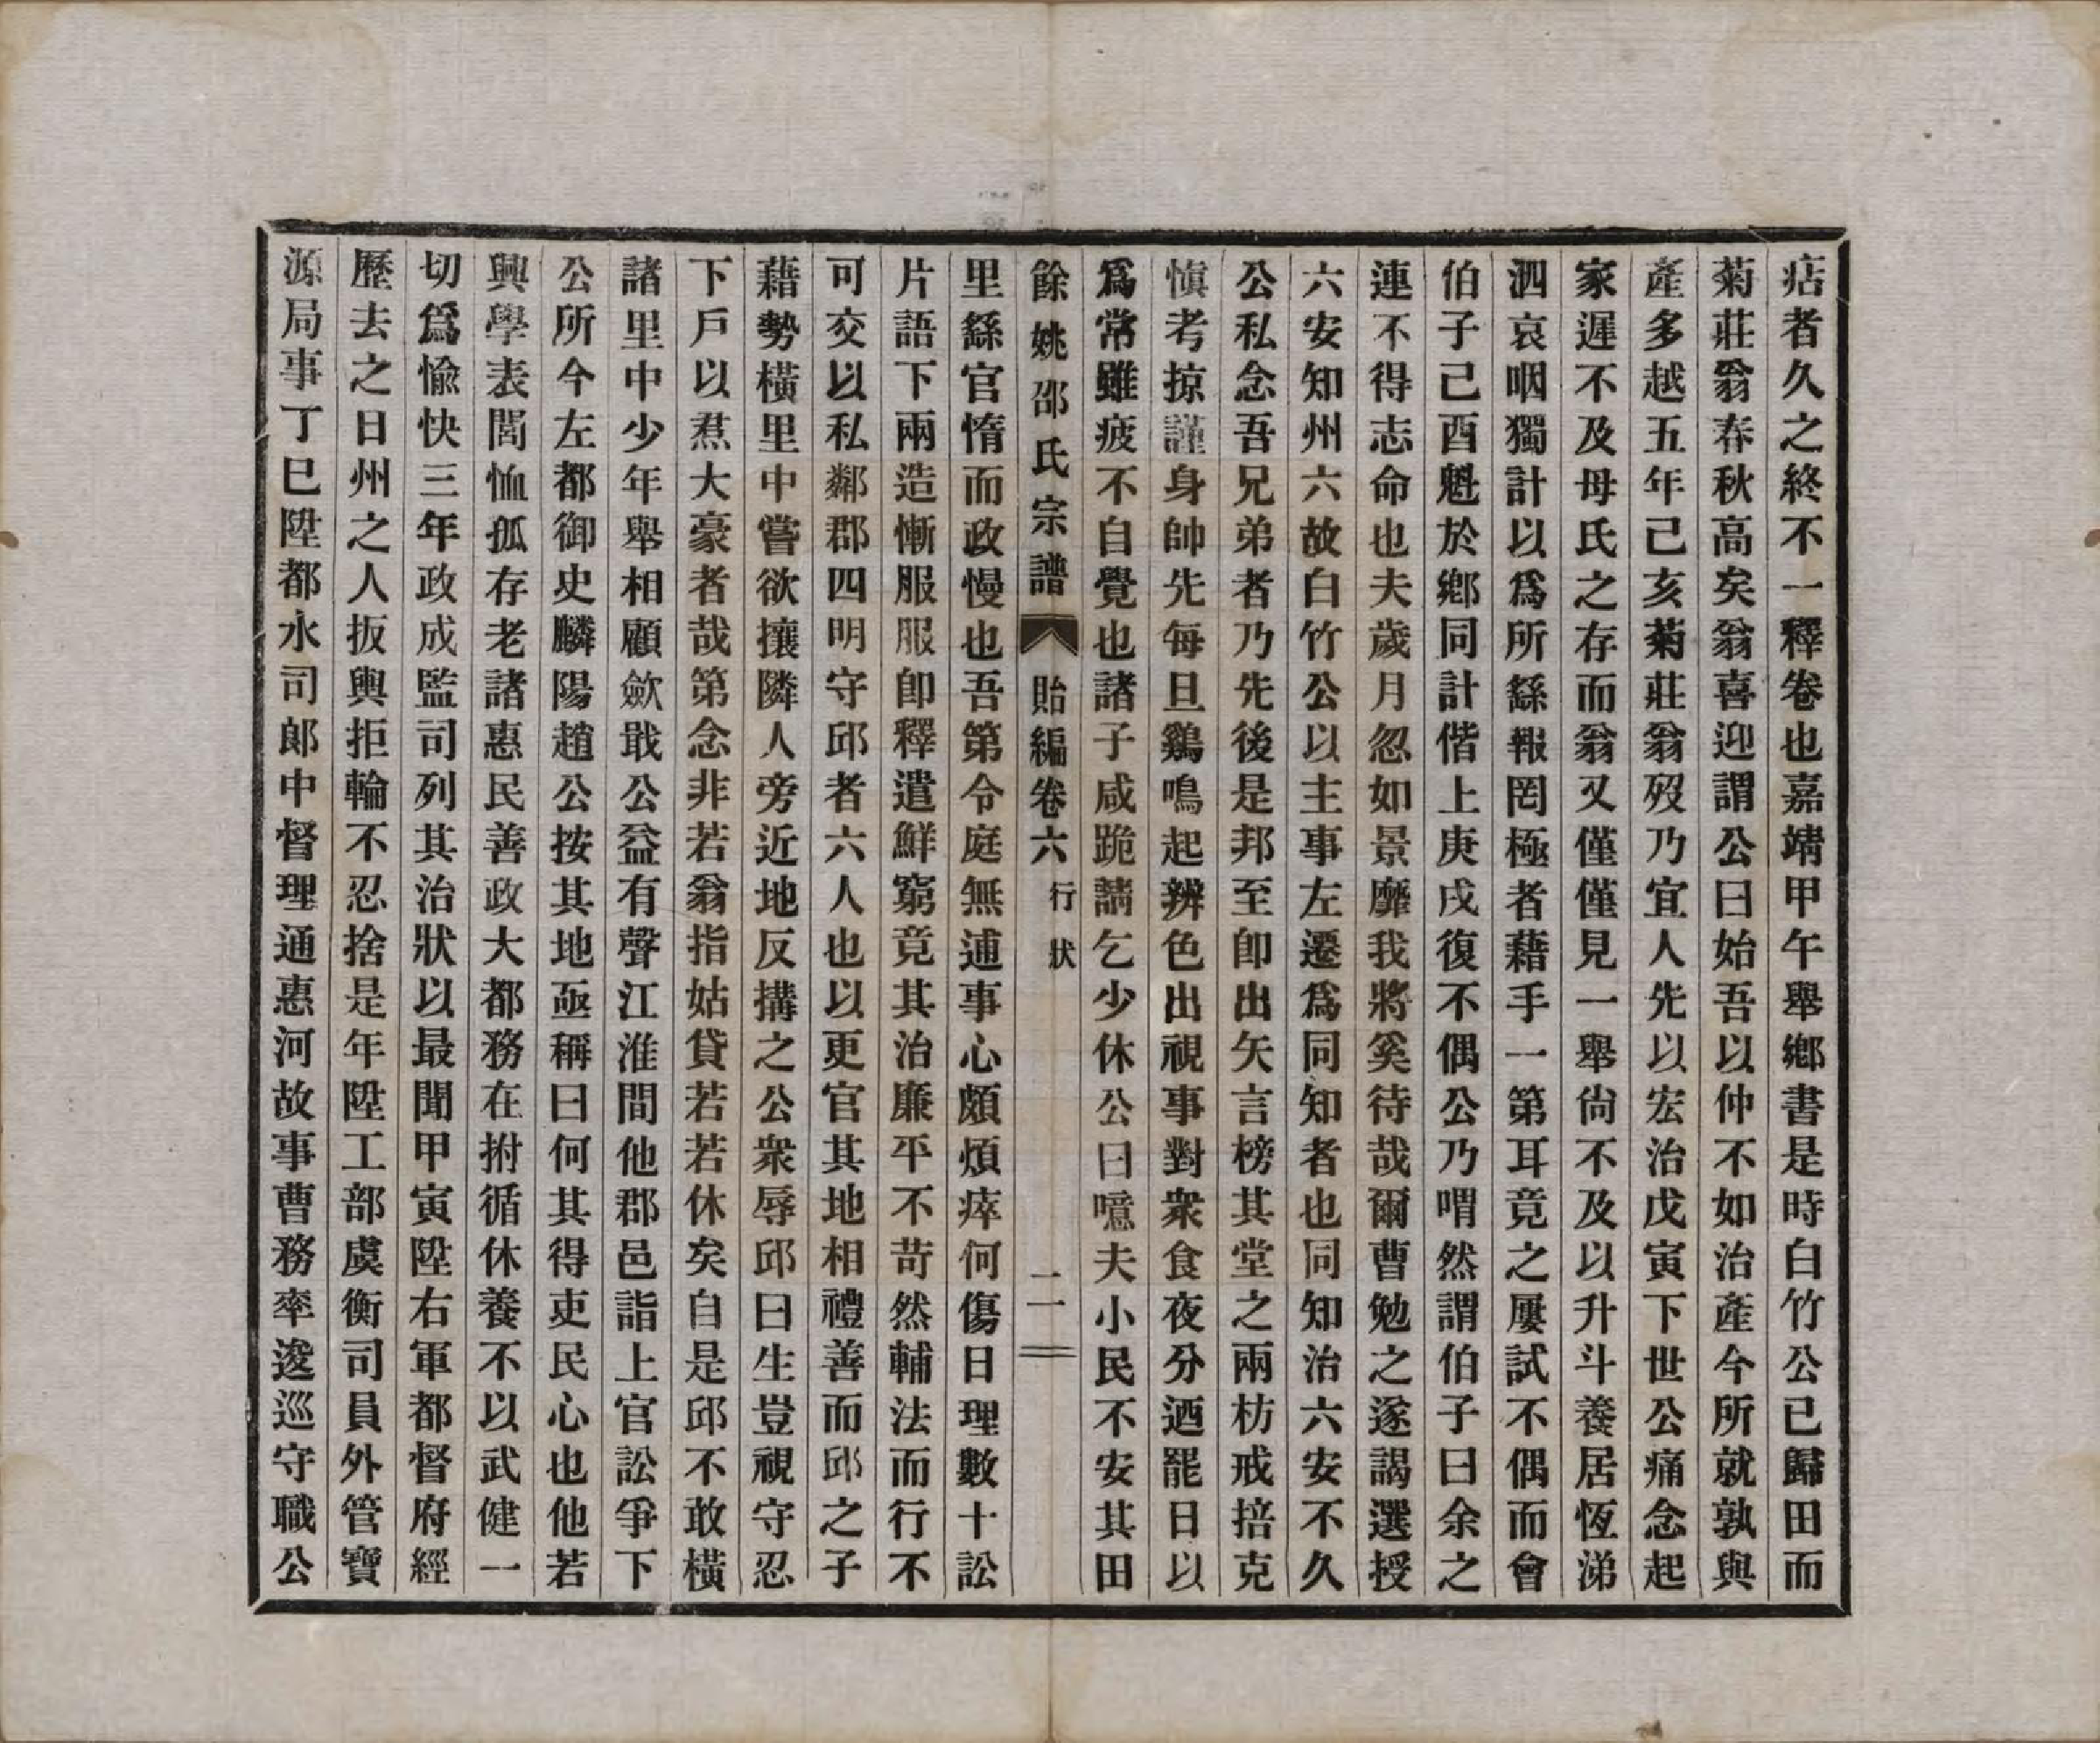 痁者久之終不一釋卷也嘉靖甲午舉鄉書是時白竹公已歸田而
菊莊翁春秋高矣翁喜迎謂公曰始吾以仲不如治產今所就孰與
產多越五年己亥菊莊翁歿乃宜人先以宏治戊寅下世公痛念起
家遲不及母氏之存而翁又僅僅見一舉尙不及以升斗養居恆涕
泗哀咽獨計以爲所繇報罔極者藉手一第耳竟之屢試不偶而會
伯子己酉魁於鄉同計偕上庚戌復不偶公乃喟然謂伯子曰余之
連不得志命也夫歲月忽如景靡我將奚待哉爾曹勉之遂謁選授
六安知州六故白竹公以主事左遷爲同知者也同知治六安不久
公私念吾兄弟者乃先後是邦至卽出矢言榜其堂之兩枋戒掊克
愼考掠謹身帥先每旦鷄鳴起辨色出視事對衆食夜分迺罷日以
爲常雖疲不自覺也諸子咸跪請乞少休公曰噫夫小民不安其田
餘姚邵氏宗譜 貽編卷六 行狀 二
里繇官惰而政慢也吾第令庭無逋事心頗煩瘁何傷日理數十訟
片語下兩造慚服服卽釋遣鮮窮竟其治廉平不苛然輔法而行不
可交以私鄰郡四明守邱者六人也以更官其地相禮善而邱之子
藉勢橫里中嘗欲攘隣人旁近地反搆之公衆辱邱曰生豈視守忍
下戶以煮大豪者哉第念非若翁指姑貸若若休矣自是邱不敢橫
諸里中少年舉相顧歛戢公益有聲江淮間他郡邑詣上官訟爭下
公所今左都御史麟陽趙公按其地亟稱曰何其得吏民心也他若
興學表閭恤孤存老諸惠民善政大都務在拊循休養不以武健一
切爲愉快三年政成監司列其治狀以最聞甲寅陞右軍都督府經
歷去之日州之人扳輿拒輪不忍捨是年陞工部虞衡司員外管寶
源局事丁巳陞都水司郞中督理通惠河故事曹務率逡巡守職公